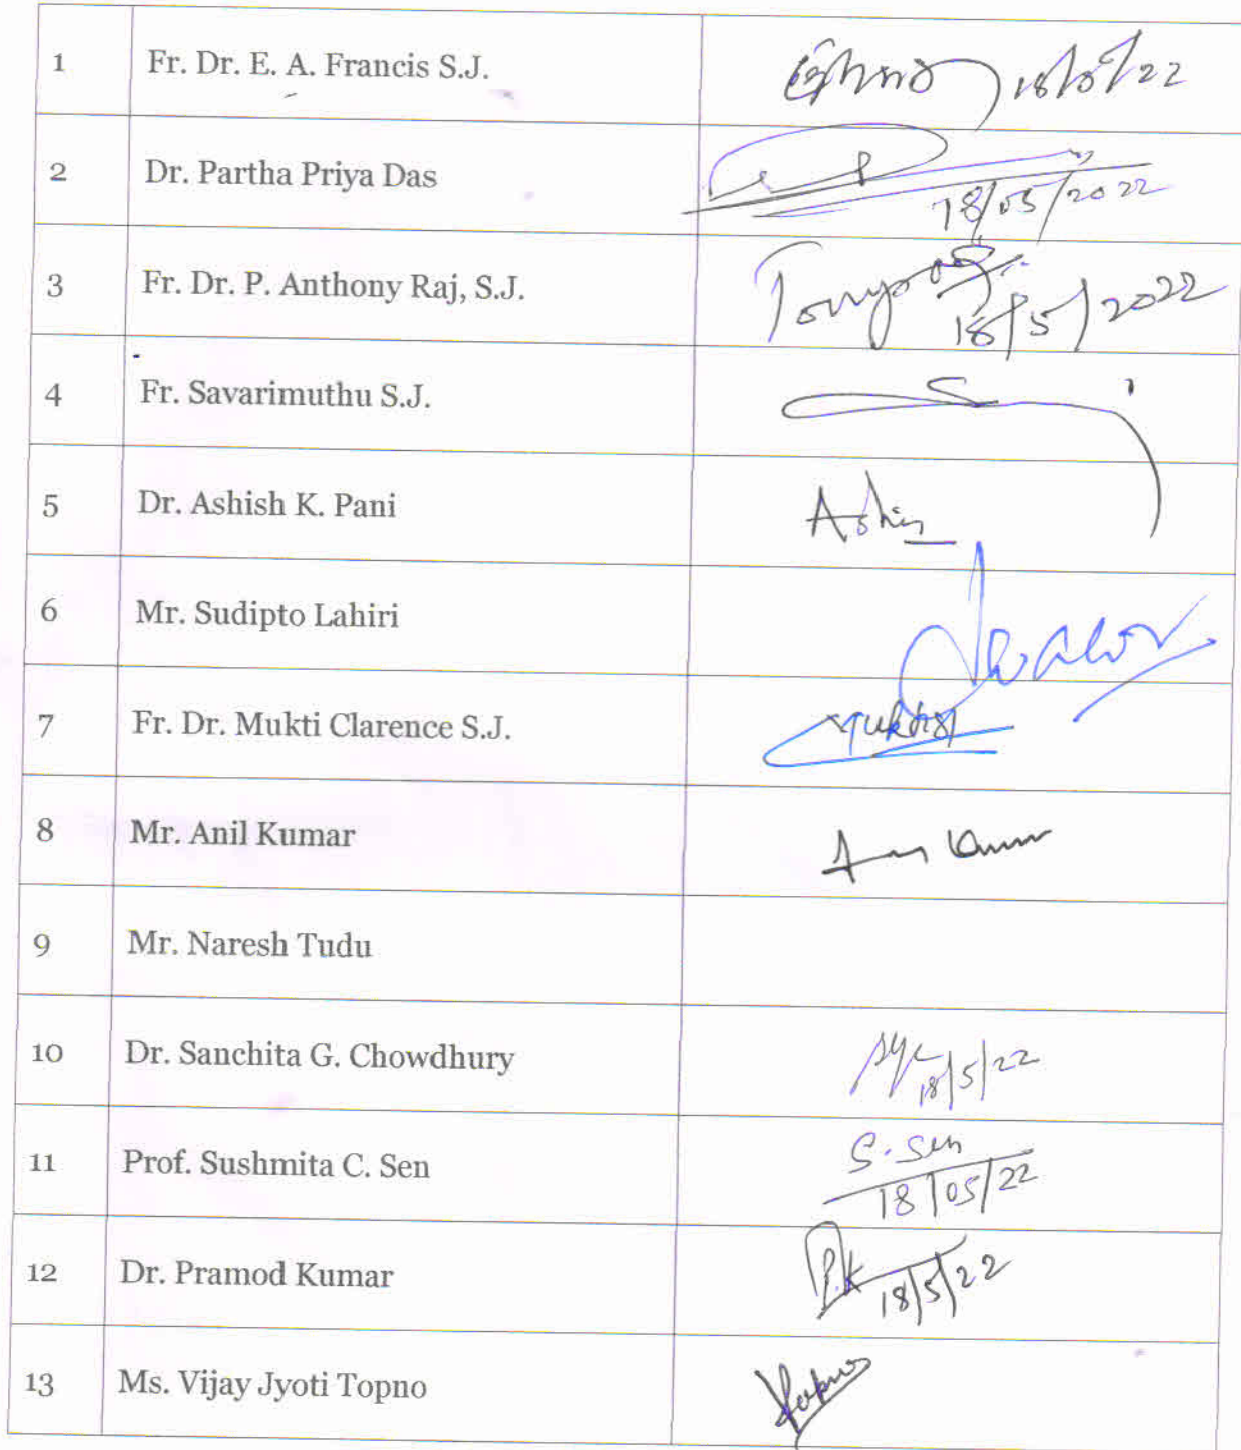 1 Fr. Dr. E. A. Francis S.J. 18/5/22
2 Dr. Partha Priya Das
18/05/2022
3 Fr. Dr. P. Anthony Raj, S.J. Tonyraj
18/5/2022
4 Fr. Savarimuthu S.J.
5 Dr. Ashish K. Pani Ashis
6 Mr. Sudipto Lahiri
7 Fr. Dr. Mukti Clarence S.J.
8 Mr. Anil Kumar Kumar
9 Mr. Naresh Tudu
10 Dr. Sanchita G. Chowdhury
18/5/22
11 Prof. Sushmita C. Sen S. Sen
18/05/22
12 Dr. Pramod Kumar P.K
18/5/22
13 Ms. Vijay Jyoti Topno Topno